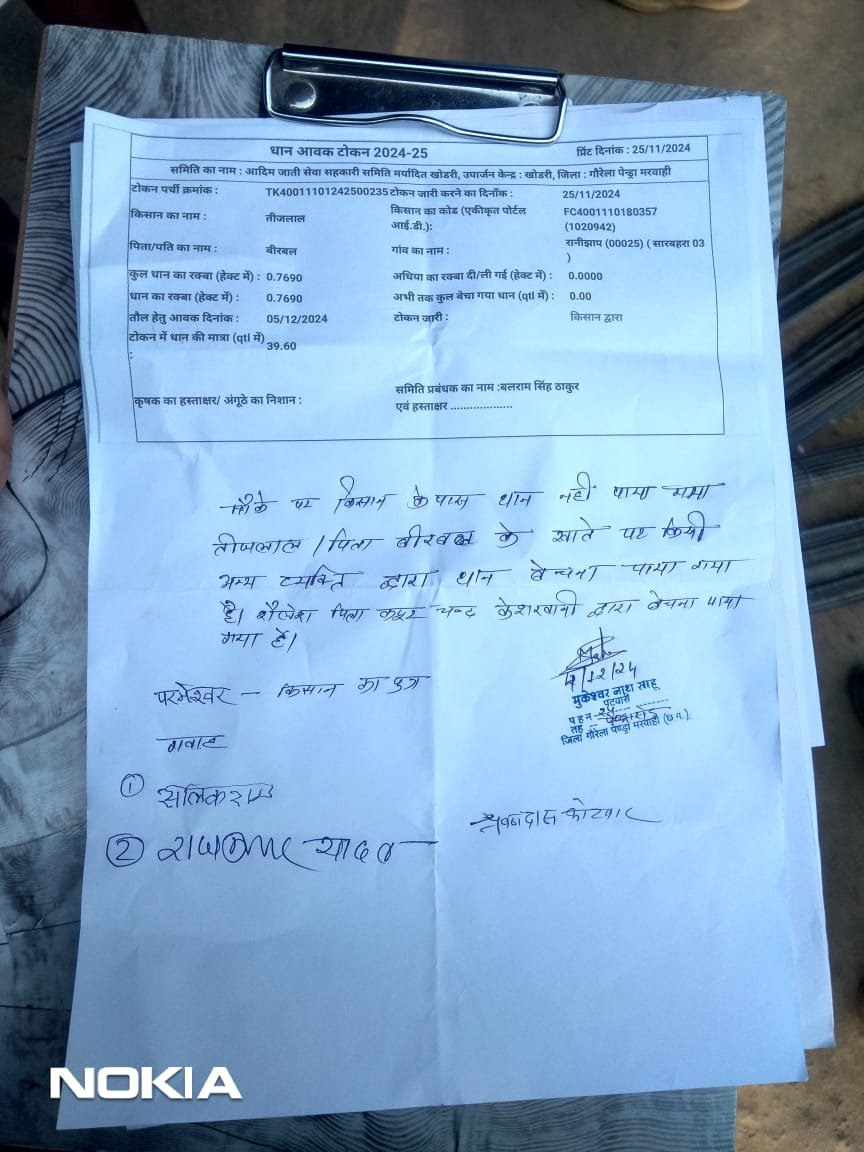 धान आवक टोकन 2024-25 प्रिंट दिनांक : 25/11/2024
समिति का नाम : आदिम जाती सेवा सहकारी समिति मर्यादित खोडरी, उपार्जन केन्द्र : खोडरी, जिला : गौरेला पेन्ड्रा मरवाही
टोकन पर्ची क्रमांक : TK40011101242500235 टोकन जारी करने का दिनाँक : 25/11/2024
किसान का नाम : तीजलाल किसान का कोड (एकीकृत पोर्टल आई.डी.): FC4001110180357 (1020942)
पिता/पति का नाम : बीरबल गांव का नाम : रानीझाप (00025) ( सारबहरा 03 )
कुल धान का रकबा (हेक्ट में) : 0.7690 अधिया का रकबा दी/ली गई (हेक्ट में) : 0.0000
धान का रकबा (हेक्ट में) : 0.7690 अभी तक कुल बेचा गया धान (qtl में) : 0.00
तौल हेतु आवक दिनांक : 05/12/2024 टोकन जारी : किसान द्वारा
टोकन में धान की मात्रा (qtl में) : 39.60
समिति प्रबंधक का नाम :बलराम सिंह ठाकुर
कृषक का हस्ताक्षर/ अंगूठे का निशान : एवं हस्ताक्षर ...................
मौके पर किसान के पास धान नहीं पाया गया
तीजलाल / पिता बीरबल के खाते पर किसी
अन्य व्यक्ति द्वारा धान बेचना पाया गया
है। शैलेश पिता कपूर चन्द केशरवानी द्वारा बेचना पाया
गया है।
परमेश्वर – किसान का पुत्र
/12/24
मुकेश्वर नाथ साहू
पटवारी
प ह न
तह
जिला गौरेला पेण्ड्रा मरवाही (छ.ग.)
गवाह
① सालिकराम
② राजकुमार यादव
कोटवार
NOKIA